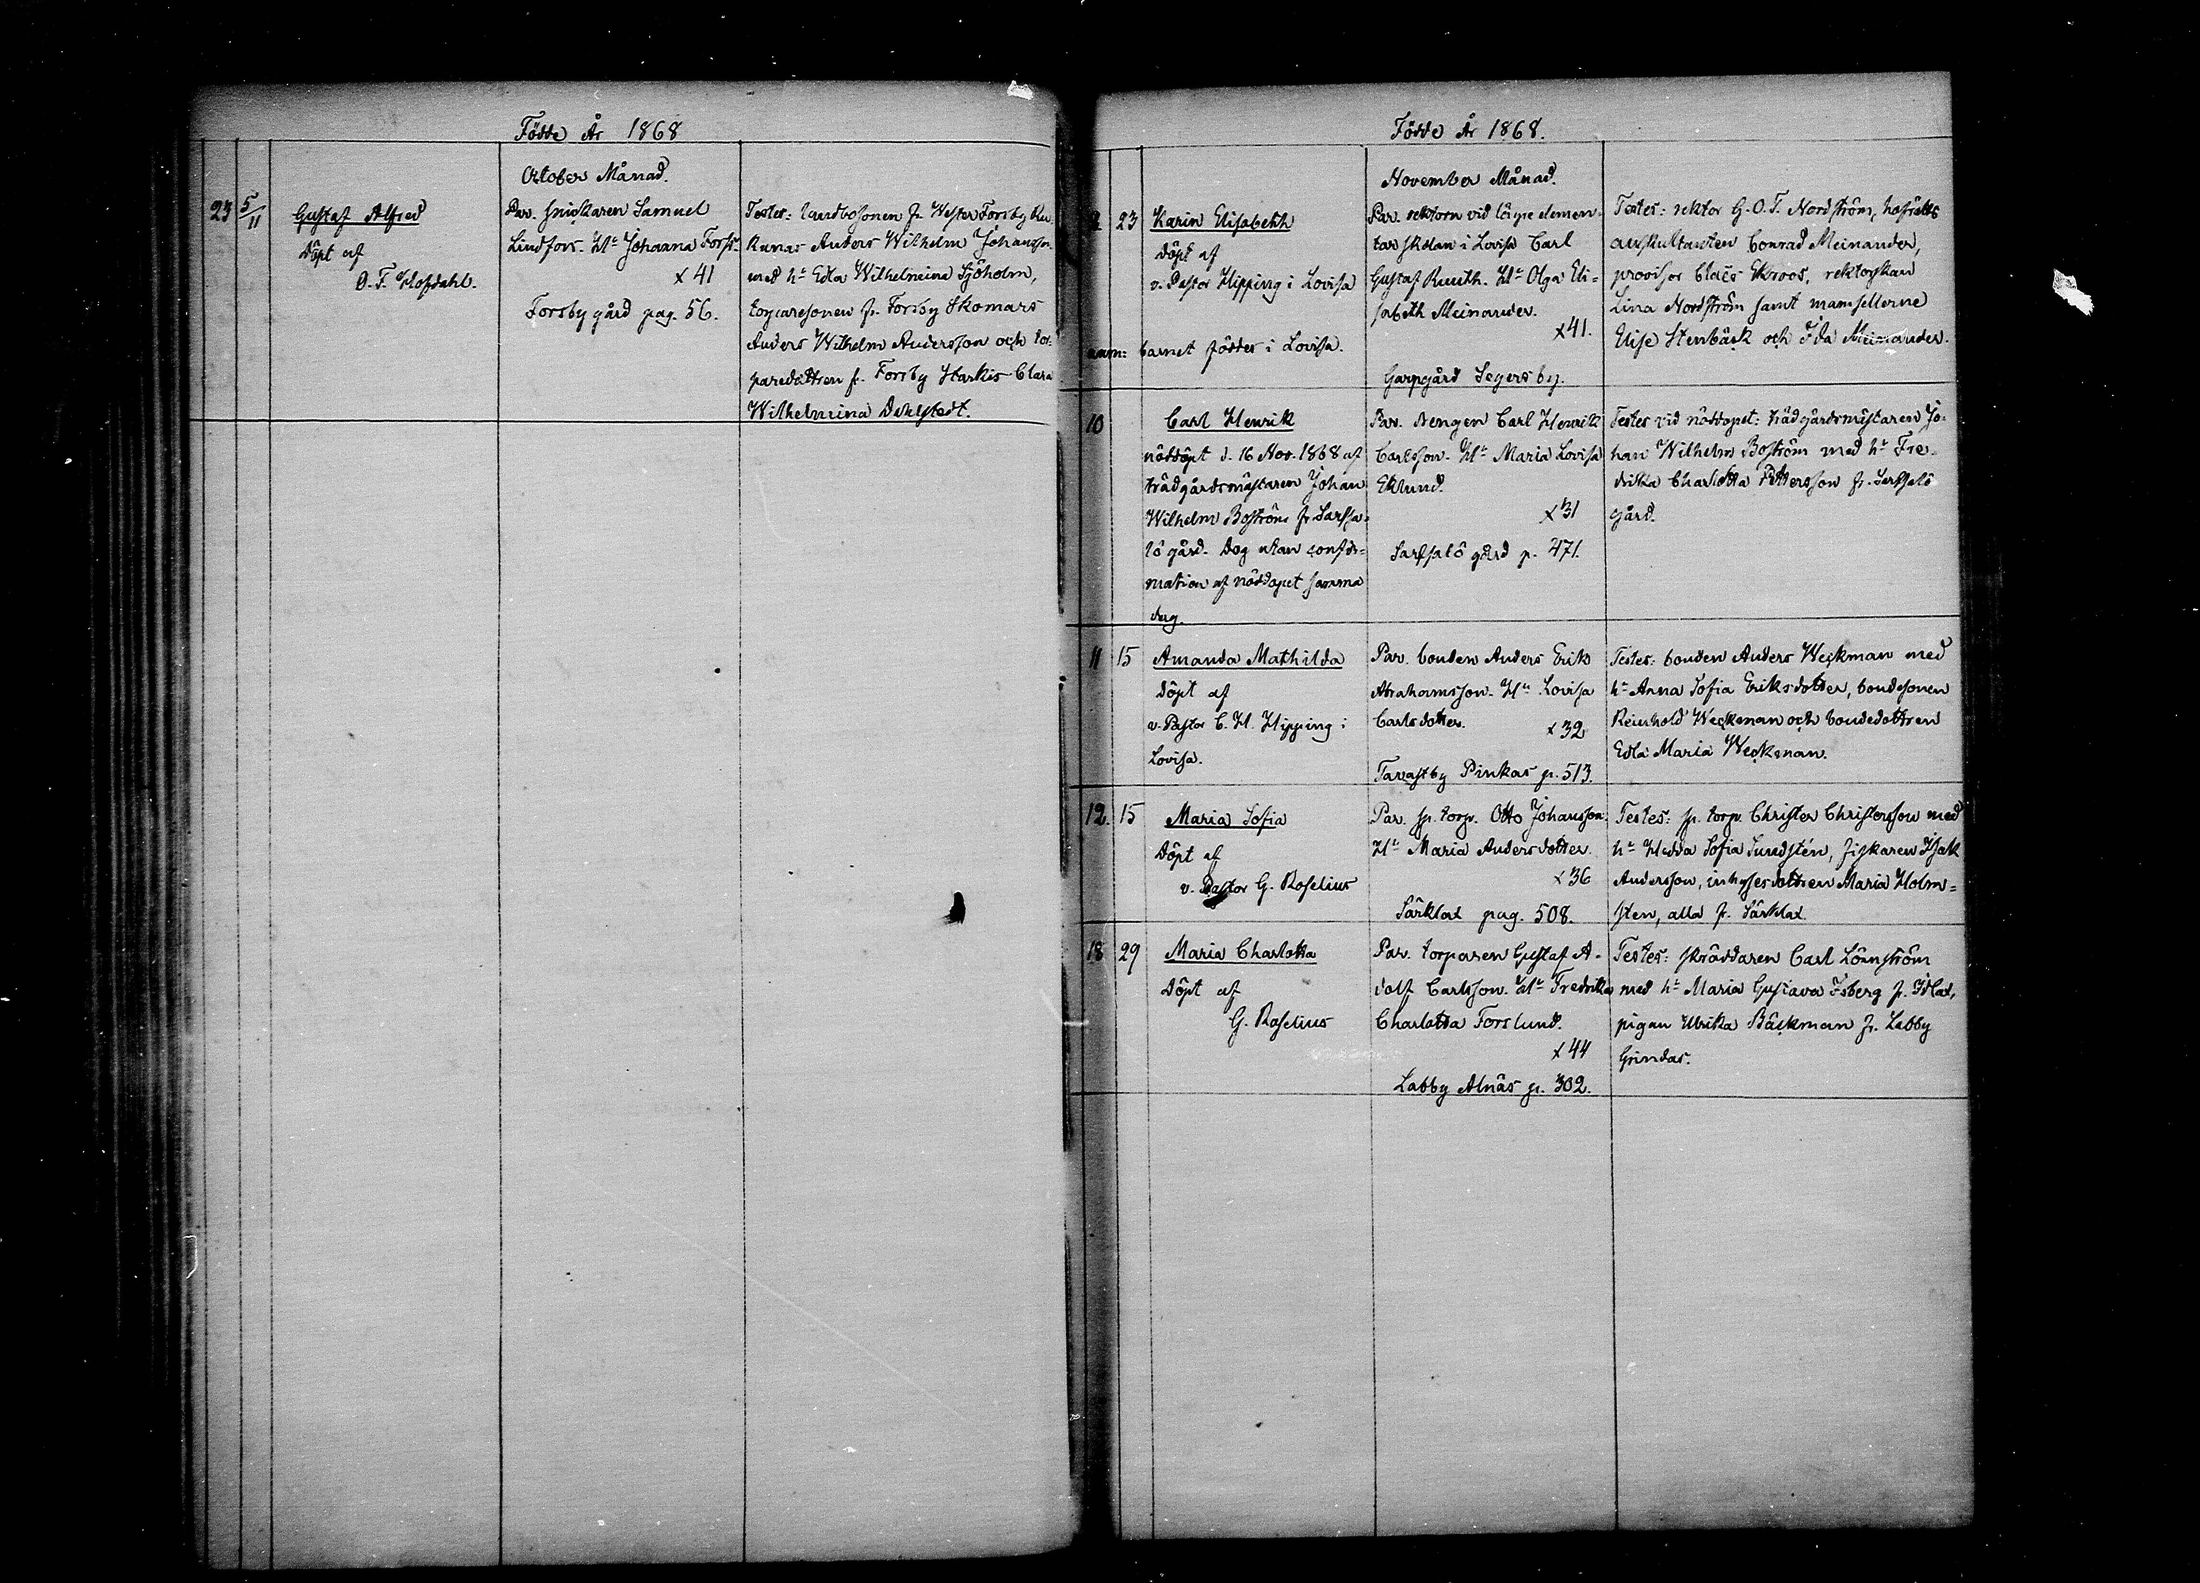 Födde År 1868
October Månad.
23 5/11 Gustaf Alfred
Döpt af
O. F. Hofdahl.
Par. snickaren Samuel
Lindfors. H:u Johanna Forss.
x 41
Forsby gård pag. 56.
Testes: landbosonen fr. Wester Forsby
Anders Wilhelm Johansson
med h:u Edla Wilhelmina Sjöholm,
torparesonen fr. Forsby Skomars
Anders Wilhelm Andersson och tor-
paredottren fr. Forsby Harkis Clara
Wilhelmina Dahlstedt.
Födde År 1868.
November Månad.
23 Karin Elisabeth
Döpt af
v. Pastor Hipping i Lovisa
anm: barnet föddes i Lovisa.
Par. rektorn vid lägre elemen-
tar skolan i Lovisa Carl
Gustaf Ruuth. H:u Olga Eli-
sabeth Meinander.
x 41.
Garpgård Segersby.
Testes: rektor G. O. T. Nordström, hofrätts
auskultanten Conrad Meinander,
provisor Claës Ekroos,
Lina Nordström samt mamsellerne
Elise Stenbäck och Ida Meinander.
10 Carl Henrik
nöddöpt d. 16 Nov. 1868 af
trädgårdsmästaren Johan
Wilhelm Boström fr. Sarfsa-
lö gård. Dog utan confir-
mation af nöddopet samma
dag.
Par. drengen Carl Henrik
Carlsson. H:u Maria Lovisa
Eklund.
x 31
Sarfsalö gård p. 471.
Testes vid nöddopet: trädgårdsmästaren Jo-
han Wilhelm Boström med h:u Fre-
drika Charlotta Pettersson fr. Sarfsalö
gård.
11 15 Amanda Mathilda
Döpt af
v. Pastor C. H. Hipping i
Lovisa.
Par. bonden Anders Erik
Abrahamsson. H:u Lovisa
Carlsdotter.
x 32
Tavastby Pinkas p. 513.
Testes: bonden Anders Weckman med
h:u Anna Sofia Eriksdotter, bondesonen
Reinhold Weckman och bondedottren
Edla Maria Weckman.
12. 15 Maria Sofia
Döpt af
v. Pastor G. Roselius
Par. sp. torp. Otto Johansson.
H:u Maria Andersdotter.
x 36
Särklax pag. 508.
Testes: sp. torp. Christer Christersson med
h:u Hedda Sofia Sundstén, fiskaren Isak
Andersson, inhysesdottren Maria Holm-
sten, alla fr. Särklax.
18 29 Maria Charlotta
Döpt af
G. Roselius
Par. torparen Gustaf A-
dolf Carlsson. H:u Fredrika
Charlotta Forslund.
x 44
Labby Alnäs p. 302.
Testes: skräddaren Carl Lönnström
med h:u Maria Gustava Isberg fr. Idlax,
pigan Ulrika Bäckman fr. Labby
Grindas.